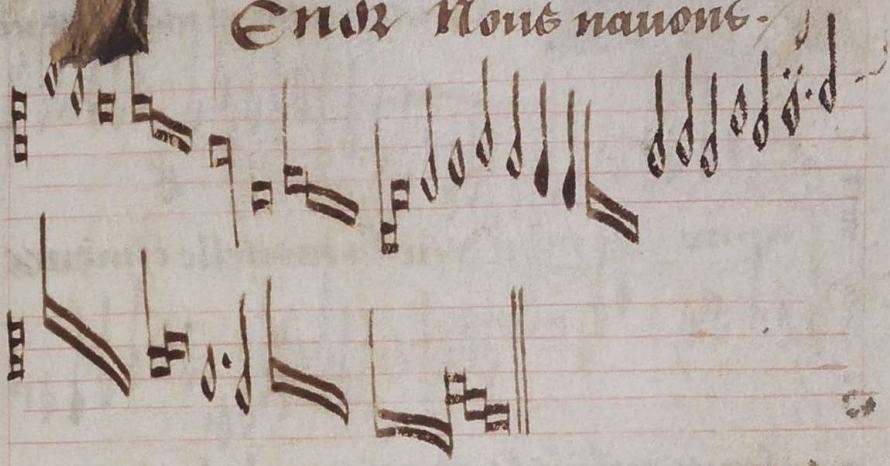 Enor Nous nauons.